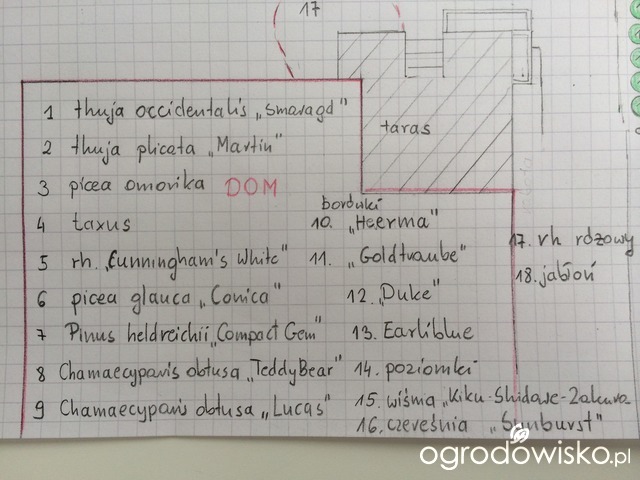 17
taras
1 thuja occidentalis „smaragd"
2 thuja plicata „Martin"
3 picea omorika
DOM
4 taxus
5 rh. „Cunningham's White"
6 picea glauca „Conica"
7 Pinus heldreichii „Compact Gem"
8 Chamaecyparis obtusa „Teddy Bear"
9 Chamaecyparis obtusa „Lucas"
borówki
10. „Heerma"
11. „Goldtraube"
12. „Duke"
13. Earliblue
14. poziomki
15. wiśnia „Kiku-Shidare-Zakura
16. czereśnia „Sunburst"
17. rh różowy
18. jabłoń
ogrodowisko.pl